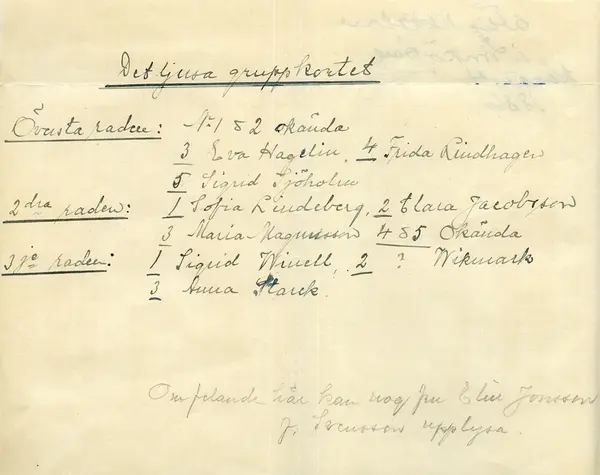 Det ljusa gruppkortet
Översta raden: No 1 & 2 okända
3 Eva Hagelin, 4 Frida Lindhagen
5 Sigrid Sjöholm
2dra raden: 1 Sofia Lindeberg, 2 Clara Jacobsson
3 Maria Magnusson 4 & 5 Okända
3je raden: 1 Sigrid Winell, 2 ? Wikmark
3 Anna Starck.
Om felande här kan nog fru Elin Jonsson
f. Svensson upplysa.